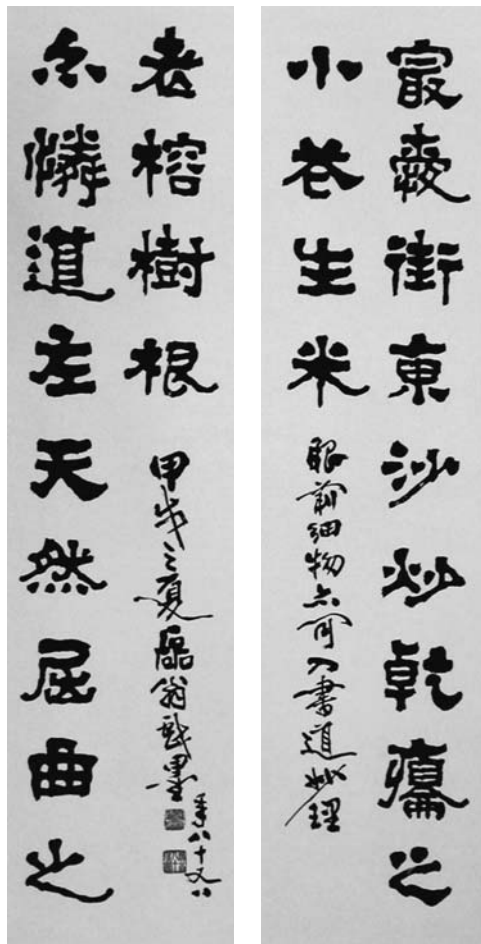 冣愛街東沙炒乾癟之
小花生米
眼前細物亦可入書道妙理
亦憐道左天然屈曲之
老榕樹根
甲戌之夏臨翁戲墨
年八十又八